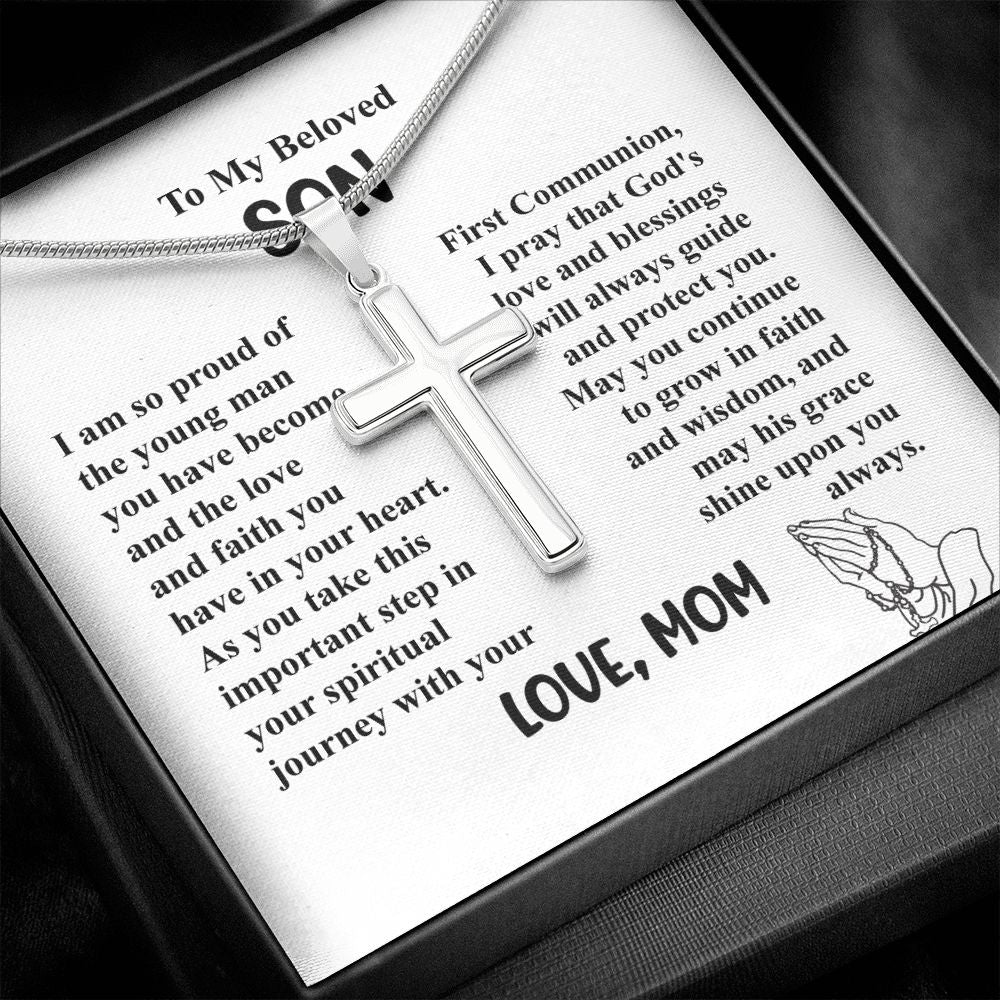 To My Beloved
SON
I am so proud of
the young man
you have become
and the love
and faith you
have in your heart.
As you take this
important step in
your spiritual
journey with your
First Communion,
I pray that God's
love and blessings
will always guide
and protect you.
May you continue
to grow in faith
and wisdom, and
may his grace
shine upon you
always.
LOVE, MOM